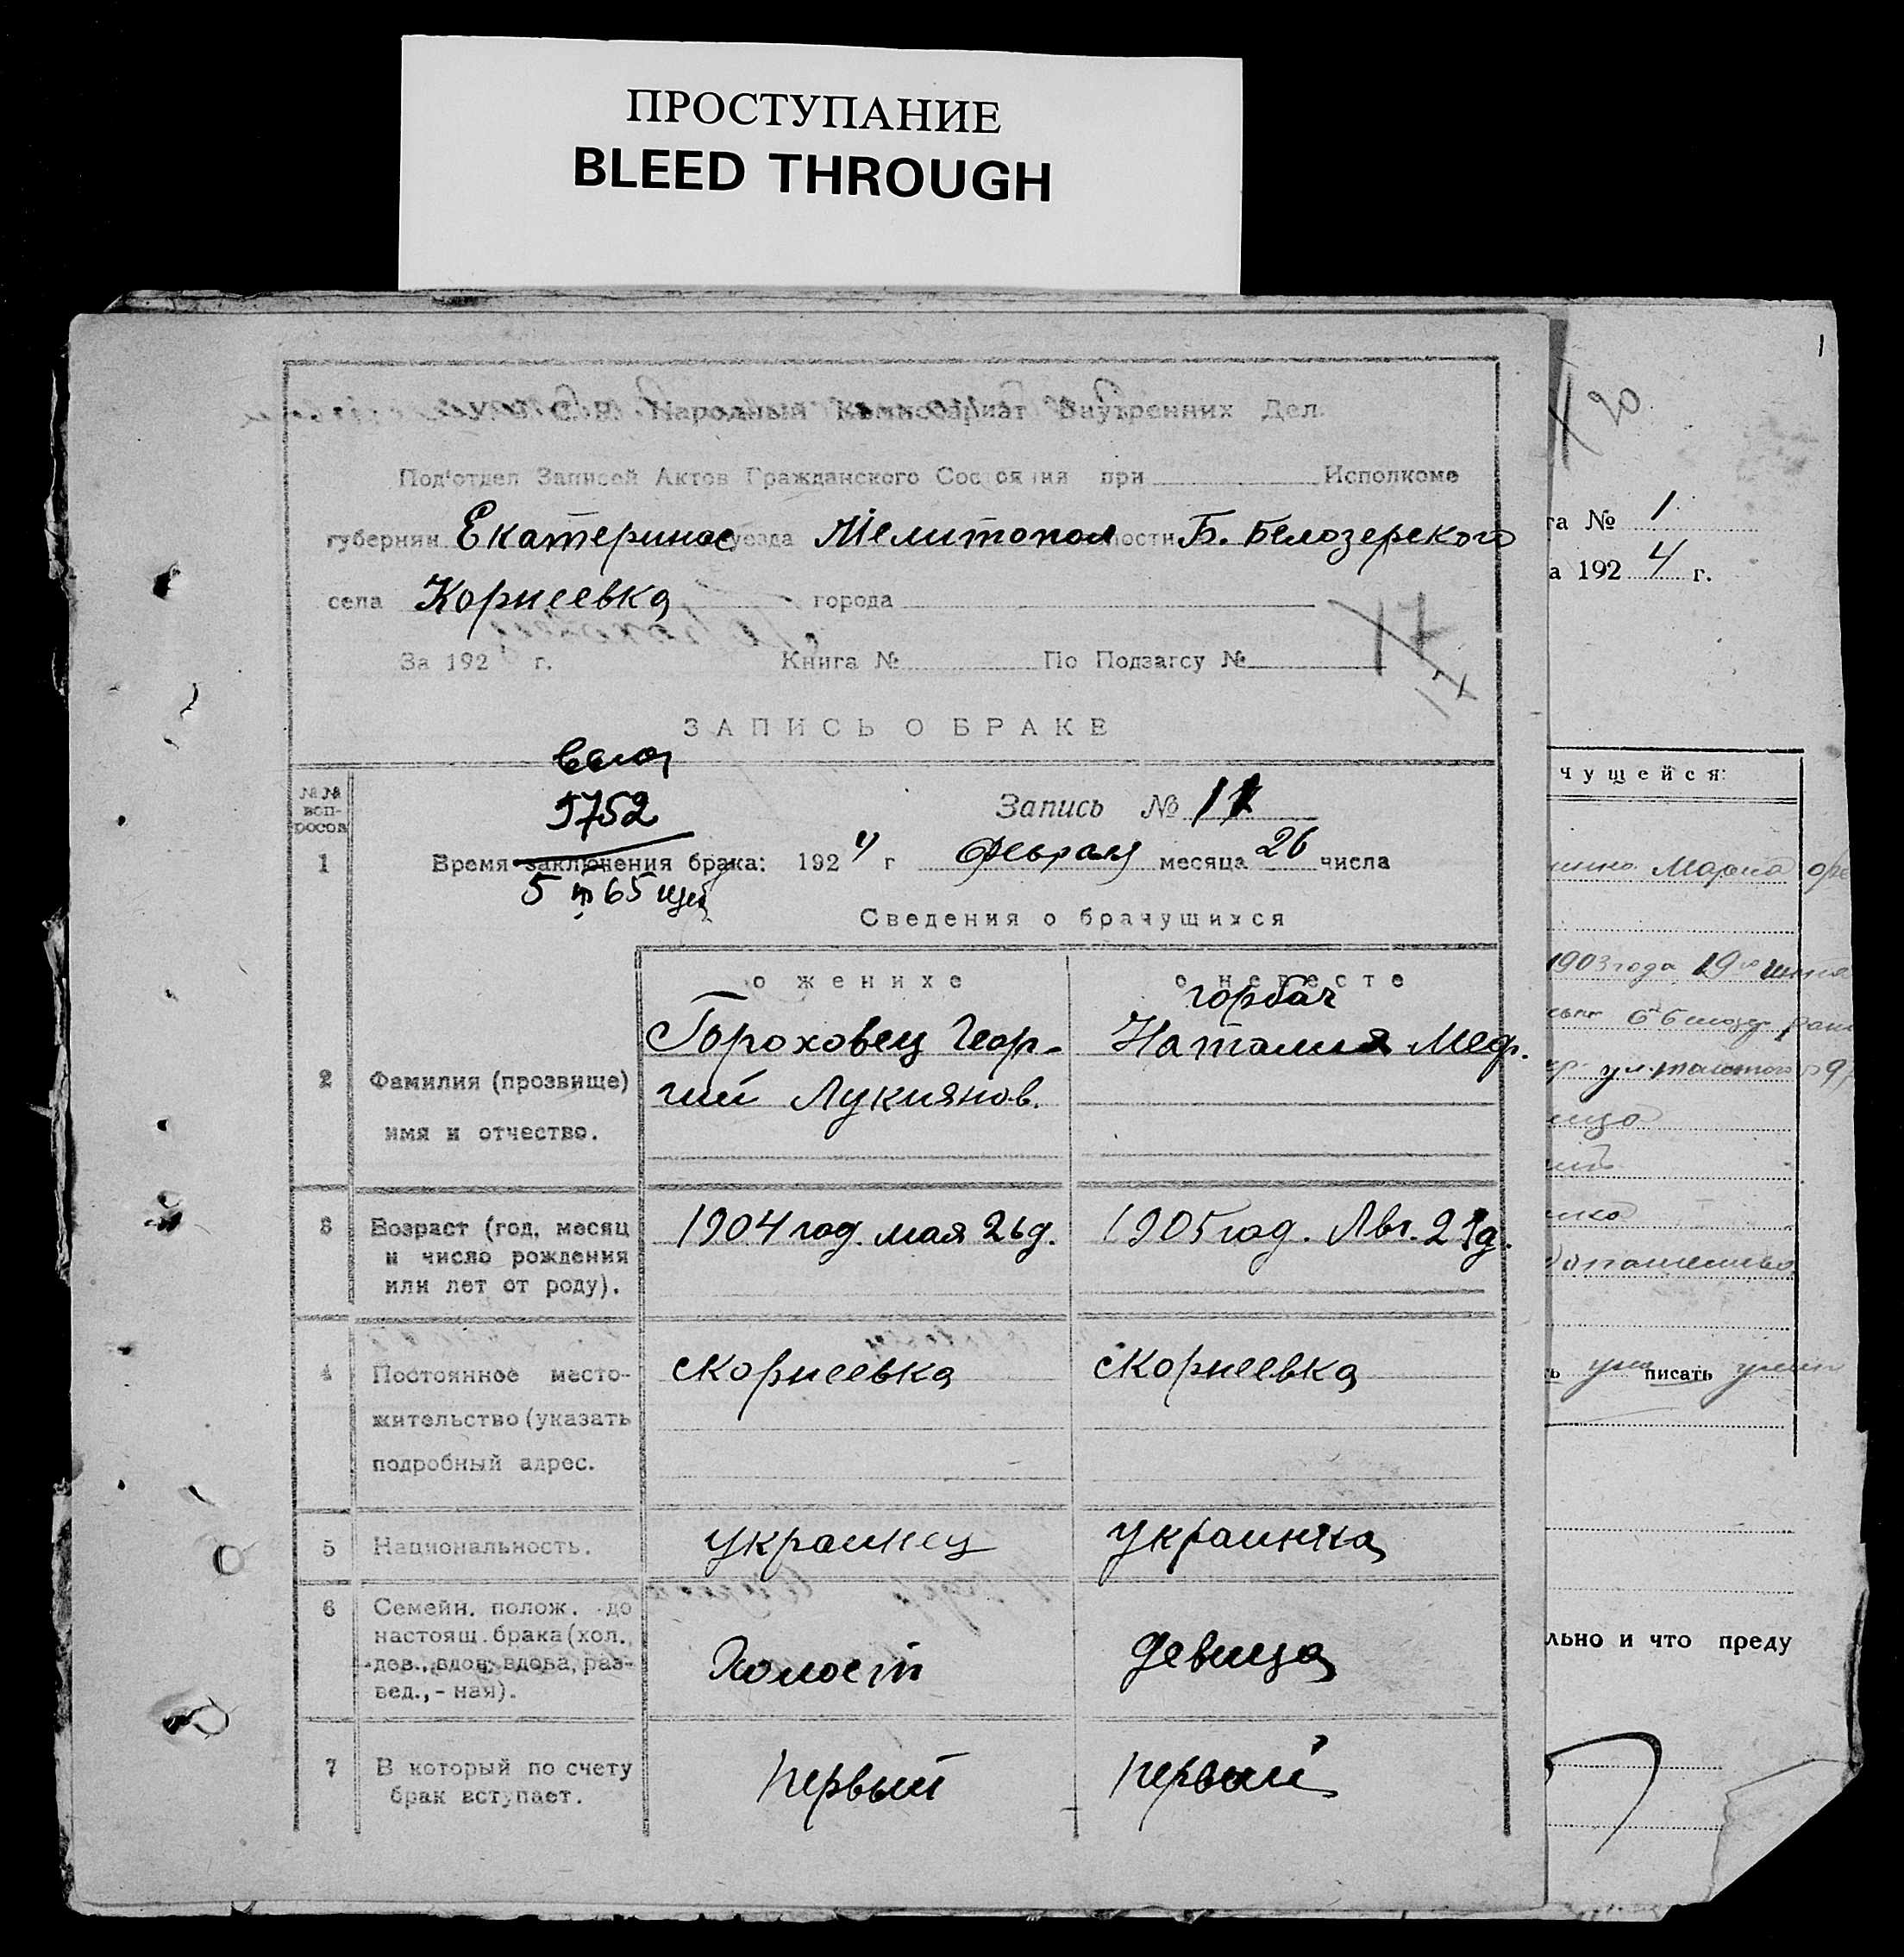 ПРОСТУПАНИЕ
BLEED THROUGH
У.С.С.Р. Народный Комиссариат Внутренних Дел.
Под'отдел Записей Актов Гражданского Состояния при Исполкоме
губернии Екатеринос уезда Мелитопол волости Б. Белозерского
села Корнеевка города
За 192 г. Книга № По Подзагсу № 17
ЗАПИСЬ О БРАКЕ
№№ воп-
росов
5752
Запись № 11
1 Время заключения брака: 1924 г февраля месяца 26 числа
5 65
Сведения о брачущихся
о женихе о невесте
Горбач
Гороховец Геор- Наталия Меф.
2 Фамилия (прозвище) гий Лукиянов.
имя и отчество.
3 Возраст (год, месяц 1904 год. мая 26 д. 1905 год. Авг. 23 д.
и число рождения
или лет от роду).
4 Постоянное место- с Корнеевка с Корнеевка
жительство (указать
подробный адрес.
5 Национальность. украинец украинка
6 Семейн. полож. до
настоящ. брака (хол.,
дев., вдов, вдова, раз- Холост девица
вед., - ная).
7 В который по счету первый первый
брак вступает.
1
та № 1
а 1924 г.
чущейся:
Мария
1903 года 19
писать
льно и что преду